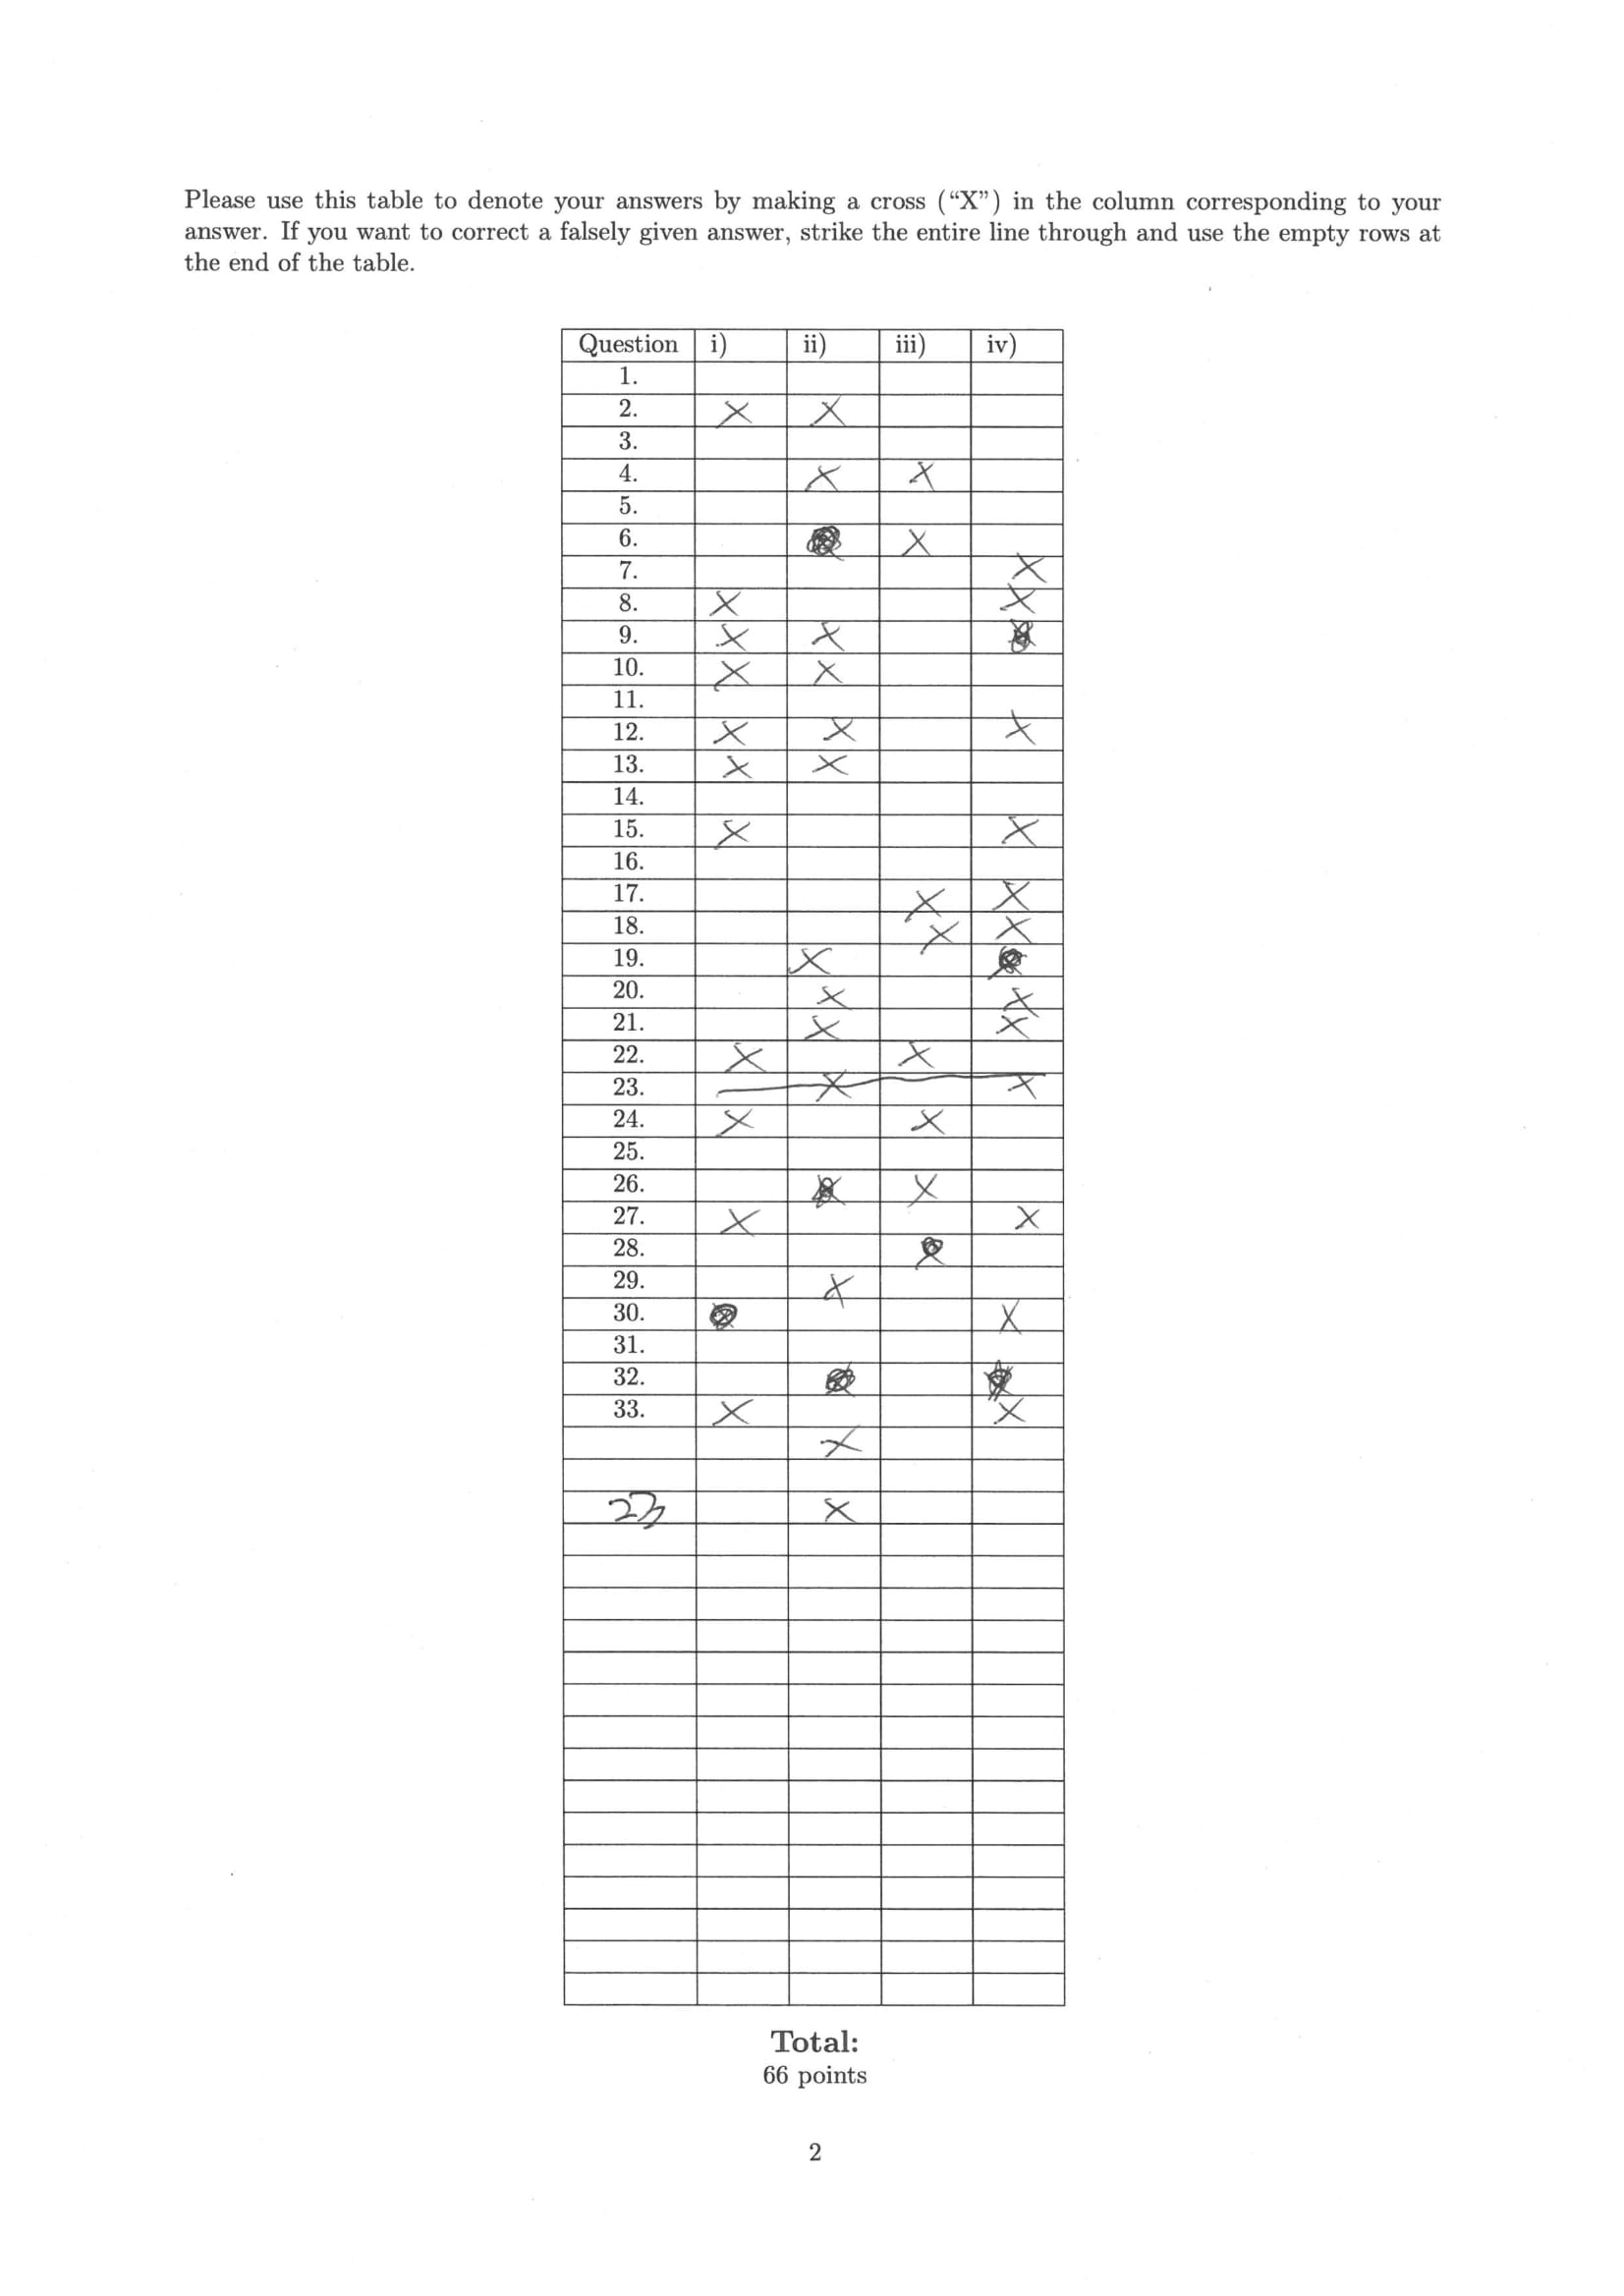 Please use this table to denote your answers by making a cross (“X”) in the column corresponding to your
answer. If you want to correct a falsely given answer, strike the entire line through and use the empty rows at
the end of the table.
Question i) ii) iii) iv)
1.
2. X X
3.
4. X X
5.
6. X
7. X
8. X X
9. X X
10. X X
11.
12. X X X
13. X X
14.
15. X X
16.
17. X X
18. X X
19. X
20. X X
21. X X
22. X X
23. X X
24. X X
25.
26. X
27. X X
28.
29. X
30. X
31.
32.
33. X X
X
23 X
Total:
66 points
2